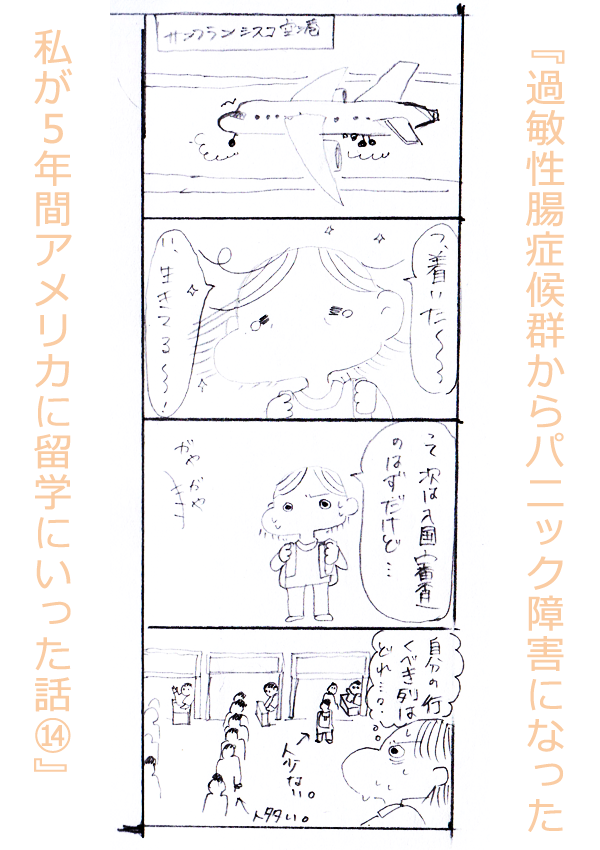 『過敏性腸症候群からパニック障害になった
私が5年間アメリカに留学にいった話⑭』
サンフランシスコ空港
つ、着いた〜〜〜
い、生きてる〜〜!
そ、次は入国審査
のはずだけど…
がや
がや
自分の行
くべき列は
どれ…?
人少ない。
人多い。